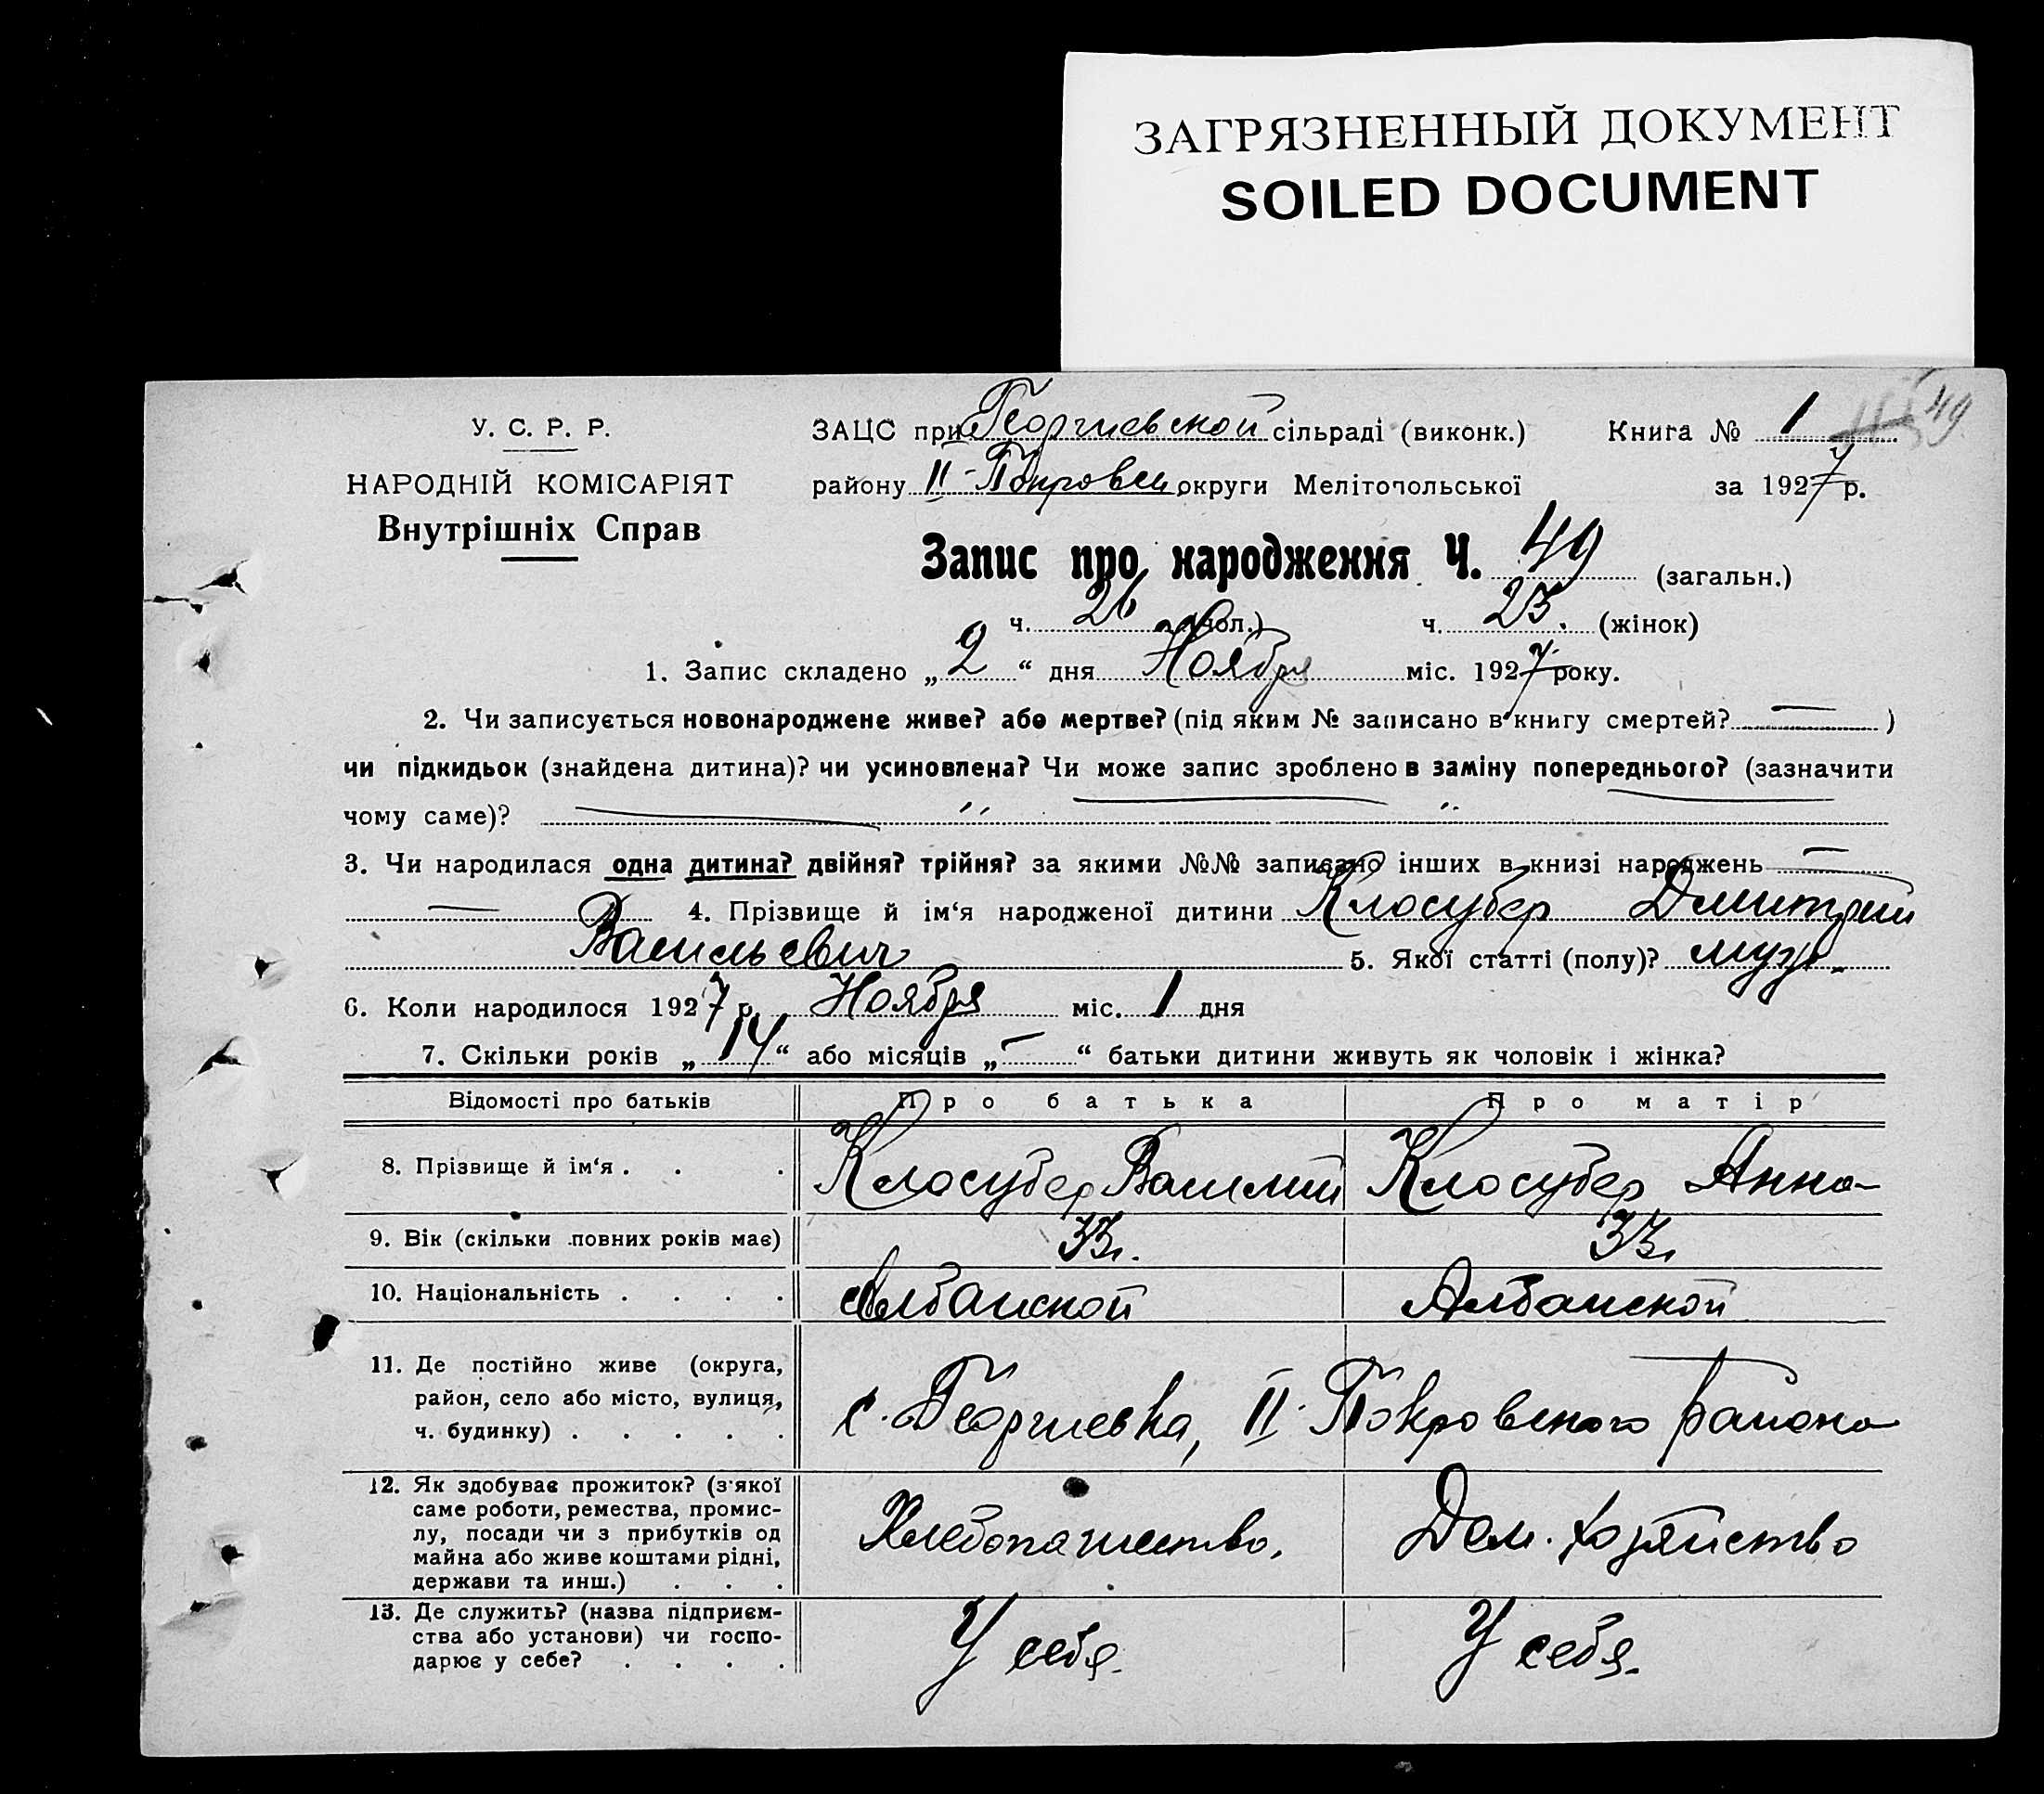 ЗАГРЯЗНЕННЫЙ ДОКУМЕНТ
SOILED DOCUMENT
У. С. Р. Р.
НАРОДНІЙ КОМІСАРІЯТ
Внутрішніх Справ
ЗАЦС при Георгиевской сільраді (виконк.) Книга № 1 49
району II-Покровск округи Мелітопольської за 1927 р.
Запис про народження Ч. 49 (загальн.)
ч. 26 (чол.) ч. 23. (жінок)
1. Запис складено „2“ дня Ноября міс. 1927 року.
2. Чи записується новонароджене живе? або мертве? (під яким № записано в книгу смертей? — )
чи підкидьок (знайдена дитина)? чи усиновлена? Чи може запис зроблено в заміну попереднього? (зазначити
чому саме)? — „ „
3. Чи народилася одна дитина? двійня? трійня? за якими №№ записано інших в книзі народжень —
— 4. Прізвище й ім‘я народженої дитини Клосубер Дмитрий
Васильевич 5. Якої статті (полу)? муж.
6. Коли народилося 1927 р. Ноября міс. 1 дня
7. Скільки років „14“ або місяців „—“ батьки дитини живуть як чоловік і жінка?
Відомості про батьків Про батька Про матір
8. Прізвище й ім‘я . . . Клосубер Василий Клосубер Анна
9. Вік (скільки повних років має) 33. 33
10. Національність . . . . Албанской Албанской
11. Де постійно живе (округа,
район, село або місто, вулиця,
ч. будинку) . . . . . с. Георгиевка, II-Покровского района
12. Як здобуває прожиток? (з'якої
саме роботи, ремества, промис-
лу, посади чи з прибутків од
майна або живе коштами рідні,
держави та инш.) . . . Хлебопашество. Дом. хозяйство
13. Де служить? (назва підприєм-
ства або установи) чи госпо-
дарює у себе? . . . . У себя. У себя.